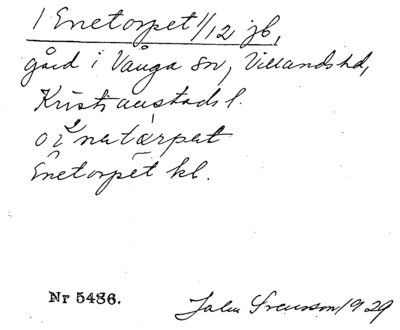 1 Enetorpet 1/12 jb,
gård i Vånga sn, Villands hd,
Kristianstads l.
Enetorpet kl.
Nr 5486. John Svensson 1929